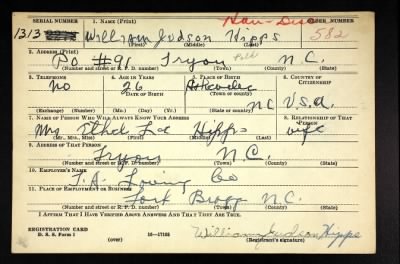 Non-Disc
SERIAL NUMBER 1. NAME (Print) ORDER NUMBER
1313 William Judson Hipps 582
(First) (Middle) (Last)
2. ADDRESS (Print)
PO #91 Tryon Polk N.C.
(Number and street or R. F. D. number) (Town) (County) (State)
3. TELEPHONE 4. AGE IN YEARS 5. PLACE OF BIRTH 6. COUNTRY OF CITIZENSHIP
No 26 Asheville
DATE OF BIRTH (Town or county)
NC U.S.A.
(Exchange) (Number) (Mo.) (Day) (Yr.) (State or country)
7. NAME OF PERSON WHO WILL ALWAYS KNOW YOUR ADDRESS 8. RELATIONSHIP OF THAT PERSON
Mrs Ethel Lee Hipps wife
(Mr., Mrs., Miss) (First) (Middle) (Last)
9. ADDRESS OF THAT PERSON
Tryon N.C.
(Number and street or R. F. D. number) (Town) (County) (State)
10. EMPLOYER'S NAME
T. A. Loving Co
11. PLACE OF EMPLOYMENT OR BUSINESS
Fort Bragg N.C.
(Number and street or R. F. D. number) (Town) (County) (State)
I AFFIRM THAT I HAVE VERIFIED ABOVE ANSWERS AND THAT THEY ARE TRUE.
REGISTRATION CARD
D. S. S. Form 1 (over) 16—17105 William Judson Hipps
(Registrant's signature)